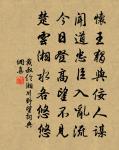 懷王獨與佞人謀
聞道忠臣入亂流
今日登高望不見
楚雲湘水各悠悠
戴叔倫湘川野望詞典
網集